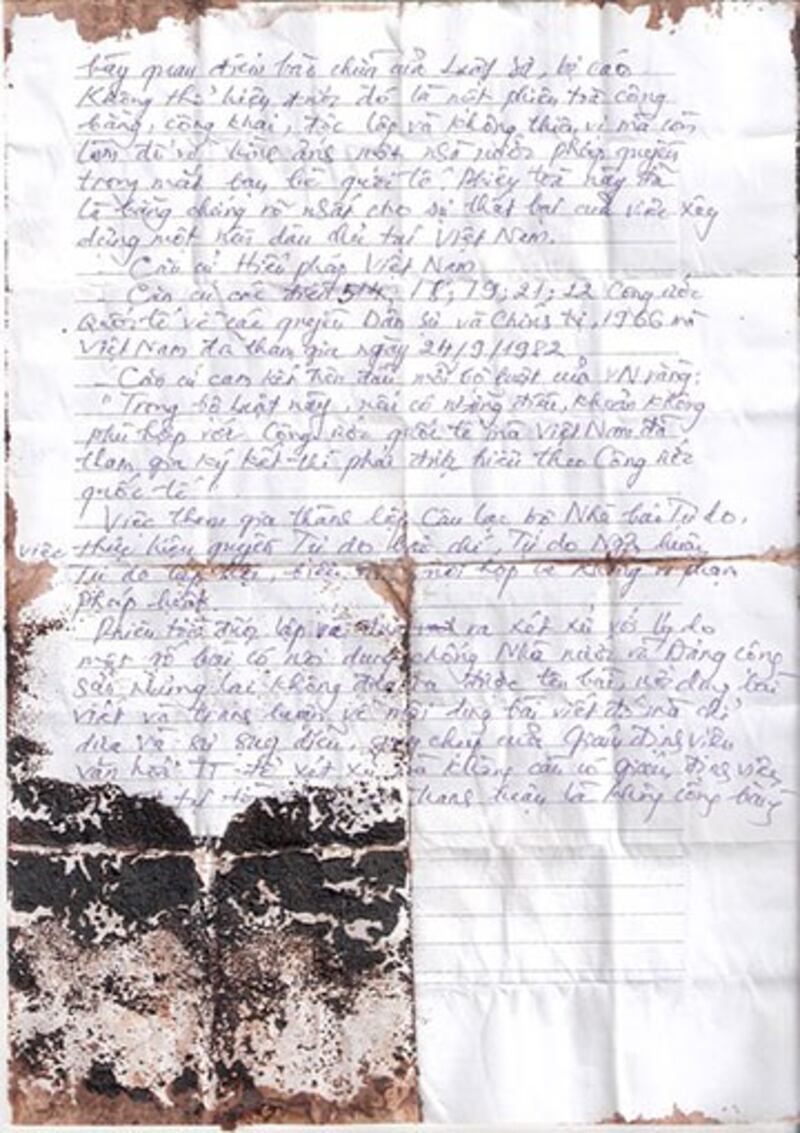 bày quan điểm bào chữa của Luật sư, bị cáo
Không thể hiện được đó là một phiên toà công
bằng, công khai, độc lập và không thiên vị mà còn
làm xấu hình ảnh một nhà nước pháp quyền
trong mắt bạn bè quốc tế. Phiên toà này đã
là bằng chứng rõ nhất cho sự thất bại của việc xây
dựng một nền dân chủ tại Việt Nam.
- Căn cứ Hiến pháp Việt Nam
- Căn cứ các điều 14, 18, 19; 21; 22 Công ước
Quốc tế về các quyền Dân sự và Chính trị, 1966 mà
Việt Nam đã tham gia ngày 24/9/1982
- Căn cứ cam kết trên đầu mỗi bộ luật của VN rằng:
"Trong bộ luật này, nếu có những điều, khoản không
phù hợp với Công ước quốc tế mà Việt Nam đã
tham gia ký kết thì phải được hiểu theo Công ước
quốc tế"
Việc tham gia thành lập Câu lạc bộ Nhà báo Tự do,
việc thực hiện quyền Tự do báo chí, Tự do Ngôn luận,
Tự do lập hội, hội họp là không vi phạm
pháp luật.
Phiên toà được lập ra xét xử với lý do
một số bài có nội dung chống Nhà nước và Đảng cộng
sản nhưng lại không đưa ra được tên bài, nội dung bài
viết và tranh luận về nội dung bài viết đó mà chỉ
dựa vào sự suy diễn, chụp của Giám định viên
văn hoá TT để xét xử mà không cần có giám định viên
tranh luận là không công bằng